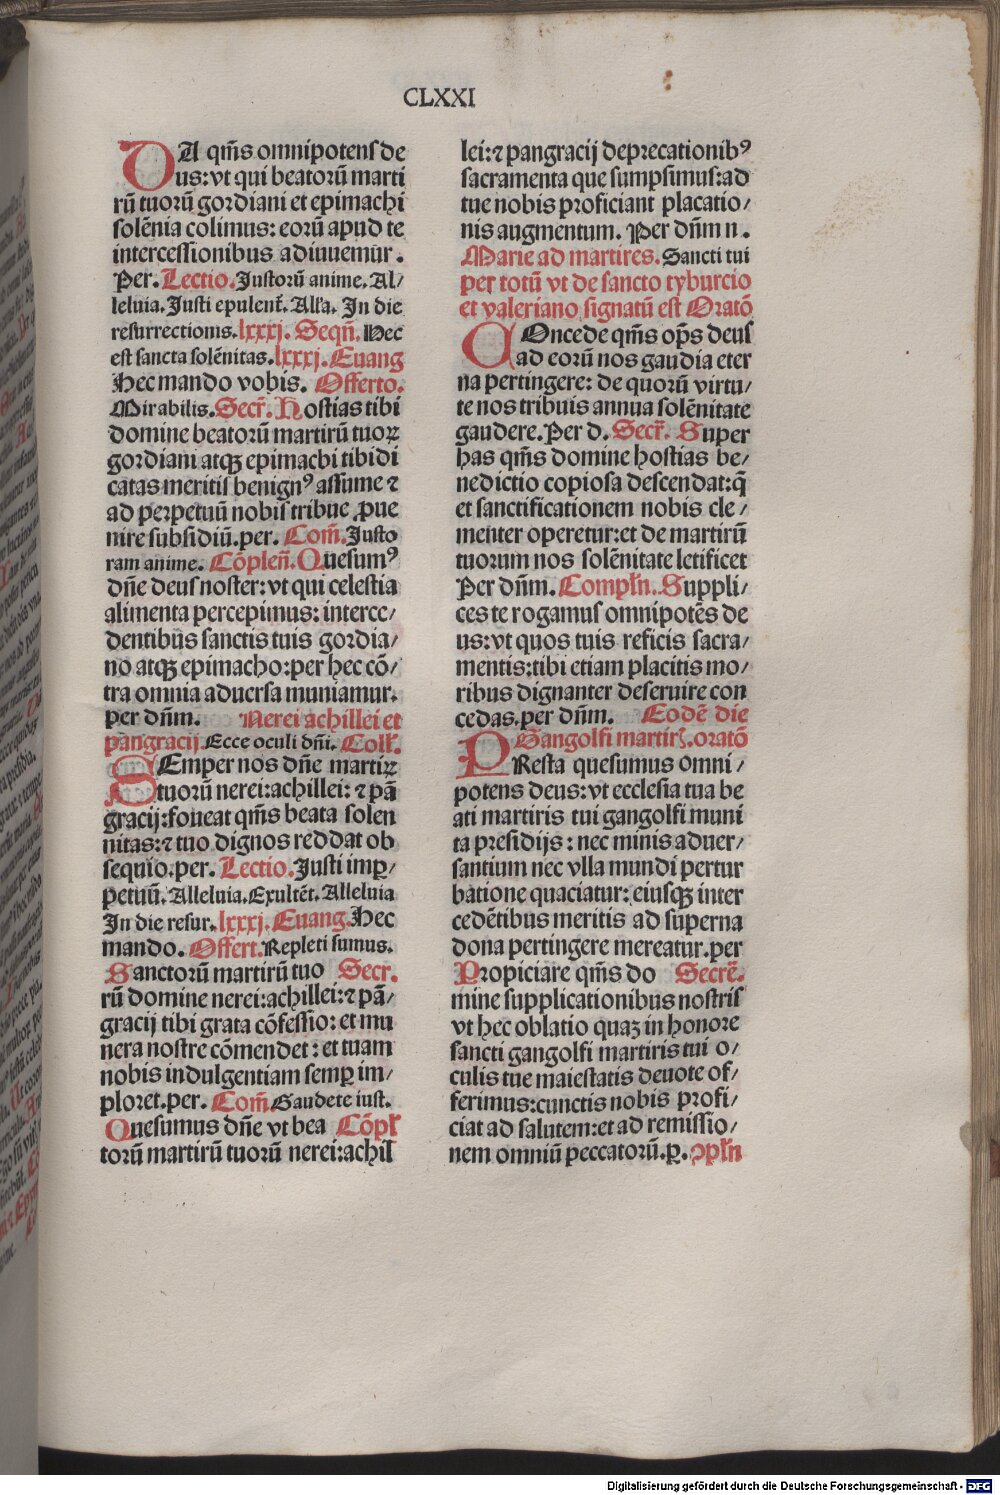 CLXXI
DA qm̄s omnipotens de
us: vt qui beatorū marti
rū tuorū gordiani et epimachi
solēnia colimus: eorū apud te
intercessionibus adiuuemur.
Per. Lectio. Justorū anime. Al/
leluia. Justi epulent̄. Alľa. In die
resurrectionis. lxxxj. Seqn̄. Hec
est sancta solēnitas. lxxxj. Euang
Hec mando vobis. Offerto.
Mirabilis. Secr̄. Hostias tibi
domine beatorū martirū tuoꝝ
gordiani atqꝫ epimachi tibi di
catas meritis benignꝰ assume ⁊
ad perpetuū nobis tribue ꝓue
nire subsidiū. per. Com̄. Justo
ram anime. Cōplen̄. Quesumꝰ
dn̄e deus noster: vt qui celestia
alimenta percepimus: interce/
dentibus sanctis tuis gordia/
no atqꝫ epimacho: per hec cō/
tra omnia aduersa muniamur.
per dn̄m. Nerei achillei et
pangracij. Ecce oculi dn̄i. Coll̄.
SEmper nos dn̄e martiꝝ
tuorū nerei: achillei: ⁊ pā
gracij: foueat qm̄s beata solen
nitas: ⁊ tuo dignos reddat ob
sequio. per. Lectio. Justi imꝑ/
petuū. Alleluia. Exultēt. Alleluia
In die resur. lxxxj. Euang. Hec
mando. Offert. Repleti sumus.
Sanctorū martirū tuo Secr.
rū domine nerei: achillei: ⁊ pā/
gracij tibi grata cōfessio: et mu
nera nostre cōmendet: et tuam
nobis indulgentiam semꝑ im/
ploret. per. Com̄ Gaudete iust.
Quesumus dn̄e vt bea Cōpľ
torū martirū tuorū nerei: achil
lei: ⁊ pangracij deprecationibꝰ
sacramenta que sumpsimus: ad
tue nobis proficiant placatio/
nis augmentum. Per dn̄m n.
Marie ad martires. Sancti tui
per totū vt de sancto tyburcio
et valeriano signatū est Oratō
COncede qm̄s op̄s deus
ad eorū nos gaudia eter
na pertingere: de quorū virtu/
te nos tribuis annua solēnitate
gaudere. Per d. Secr̄. Super
has qm̄s domine hostias be/
nedictio copiosa descendat: q̄
et sanctificationem nobis cle/
menter operetur: et de martirū
tuorum nos solēnitate letificet
Per dn̄m. Compľn. Suppli/
ces te rogamus omnipotēs de
us: vt quos tuis reficis sacra/
mentis: tibi etiam placitis mo/
ribus dignanter deseruire con
cedas. per dn̄m. Eodē die
Gangolfi martir̄. oratō
PResta quesumus omni/
potens deus: vt ecclesia tua be
ati martiris tui gangolfi muni
ta presidijs: nec minis aduer/
santium nec vlla mundi pertur
batione quaciatur: eiusqꝫ inter
cedētibus meritis ad superna
dona pertingere mereatur. per
Propiciare qm̄s do Secrē.
mine supplicationibus nostris
vt hec oblatio quaꝫ in honore
sancti gangolfi martiris tui o/
culis tue maiestatis deuote of/
ferimus: cunctis nobis profi/
ciat ad salutem: et ad remissio/
nem omniū peccatorū. ꝑ. ꝯpľn
Digitalisierung gefördert durch die Deutsche Forschungsgemeinschaft - DFG